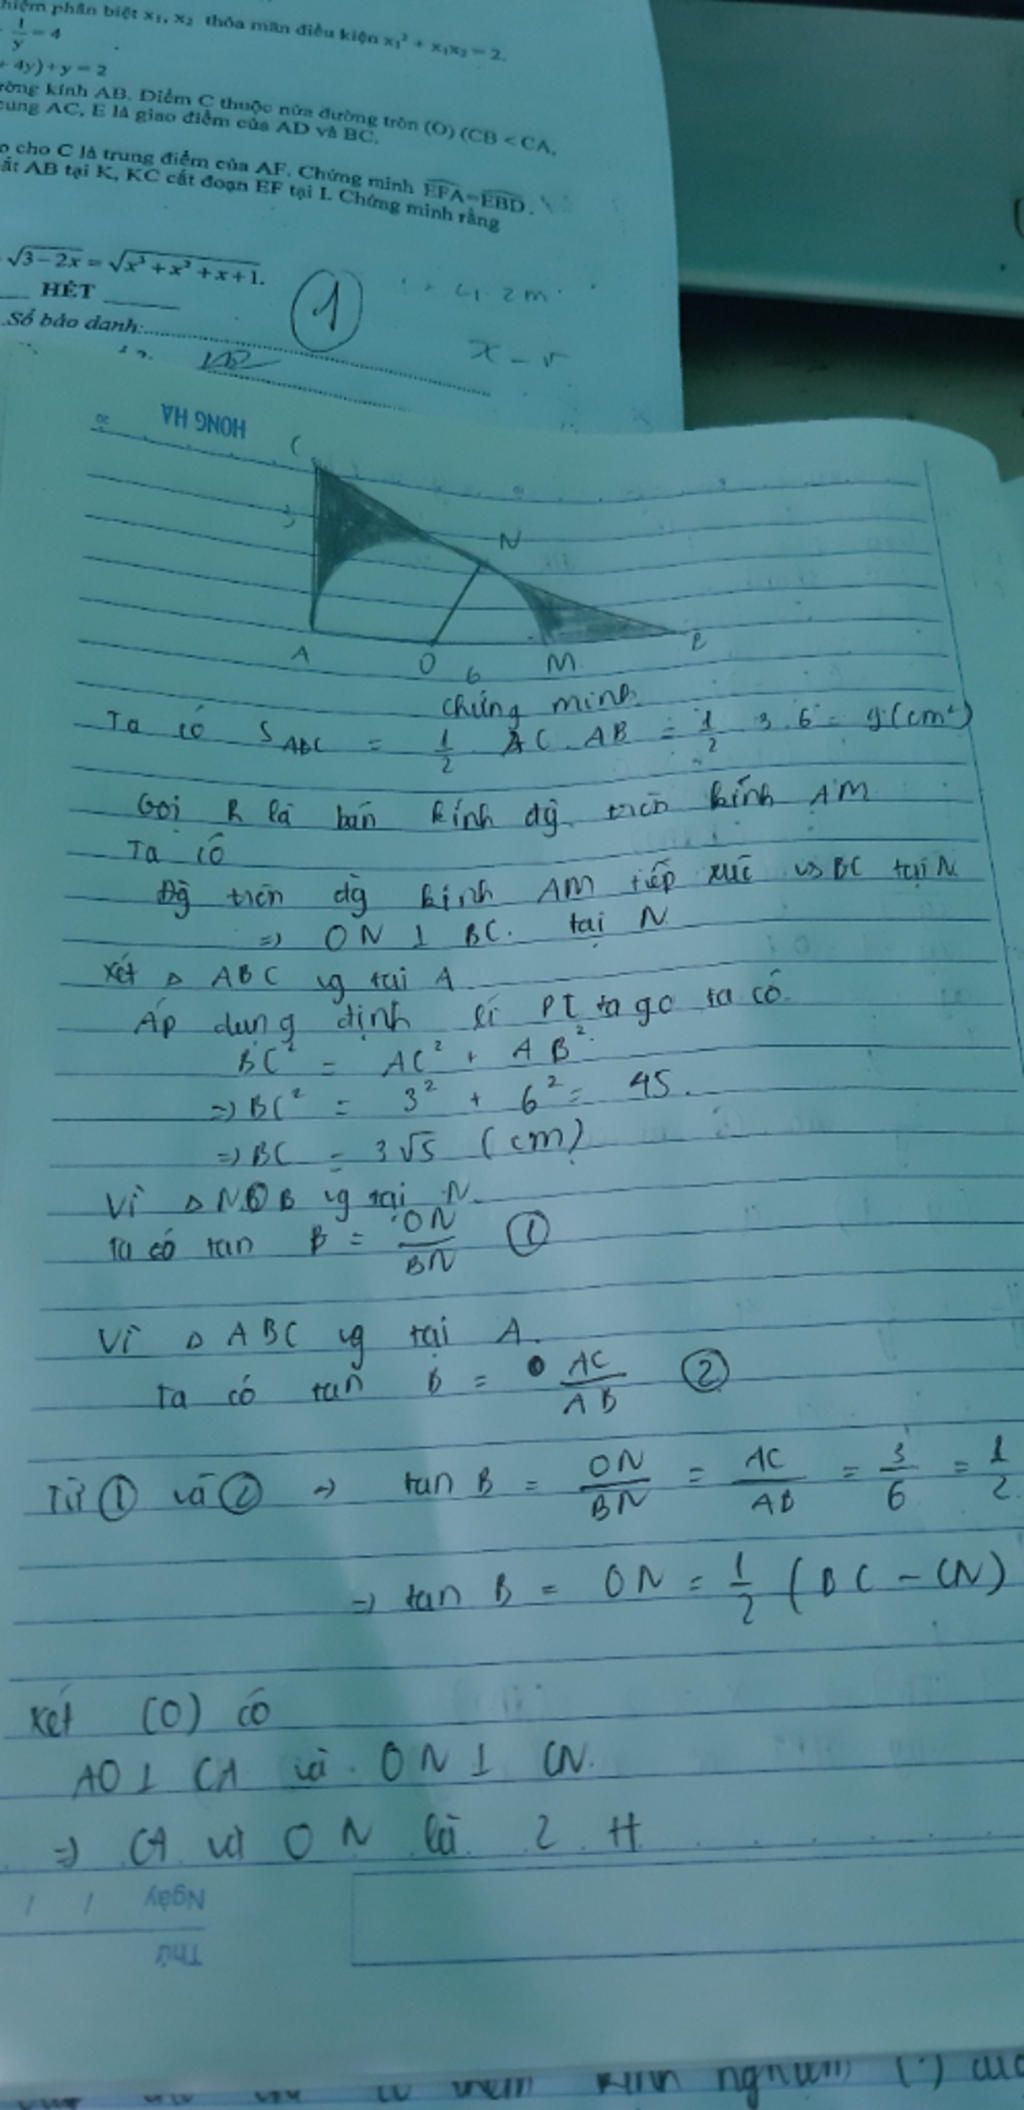 nghiệm phân biệt x₁, x₂ thỏa mãn điều kiện x₁² + x₁x₂ = 2.
1/y = 4
+ 4y) + y = 2
đường kính AB. Điểm C thuộc nửa đường tròn (O) (CB < CA,
cung AC, E là giao điểm của AD và BC.
o cho C là trung điểm của AF. Chứng minh EFA = EBD.
ắt AB tại K, KC cắt đoạn EF tại I. Chứng minh rằng
√3-2x = √x³ + x² + x + 1.
HẾT
Số báo danh:
1
x - 5
HONG HA
C
3
N
A O 6 M B
Chứng minh
Ta có S ABC = 1/2 AC . AB = 1/2 3 . 6 = 9 (cm²)
Gọi R là bán kính đg tròn kính AM
Ta có
Đg tròn đg kính AM tiếp xúc vs BC tại N
=> ON ⊥ BC. tại N
Xét Δ ABC vg tại A
Áp dụng định lí PI ta go ta có
BC² = AC² + AB²
=> BC² = 3² + 6² = 45.
=> BC = 3√5 (cm)
Vì Δ NOB vg tại N
Ta có tan B = ON/BN ①
Vì Δ ABC vg tại A.
Ta có tan B = AC/AB ②
Từ ① và ② => tan B = ON/BN = AC/AB = 3/6 = 1/2
=> tan B = ON = 1/2 (BC - CN)
Xét (O) có
AO ⊥ CA và ON ⊥ CN.
=> CA và ON là 2 tt
Ngày / /
Thứ